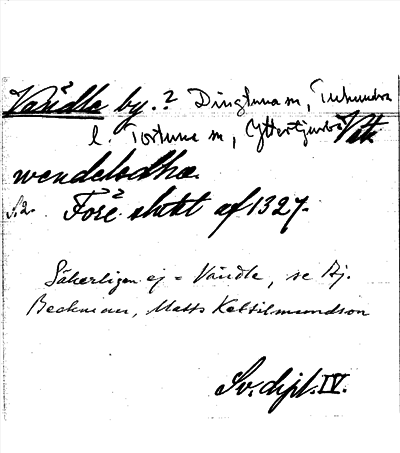 Vändle by. ? Dingtuna sn, Tuhundra
l. Tortuna sn, Yttertjurbo Vstm.
wendelsdha.
S. 2. Före slutet af 1327.
Säkerligen ej = Vändle, se Bj.
Beckman, Matts Kettilmundson
Sv. dipl. IV.